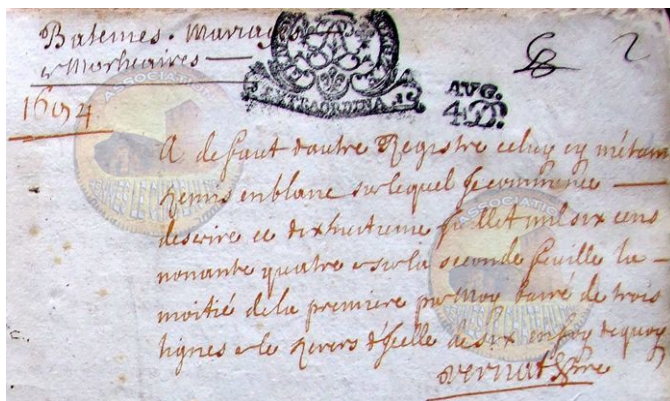 Batemes. Mariages
& Mortuaires
1694
EXTRAORDINA
AVG.
2
A defaut dautre Registre celuy cy métant
remis en blanc sur lequel Je commence
descrire ce dix huitieme Juillet mil six cens
nonante quatre & sur la seconde feuille la
moitié de la premiere par Moy barré de trois
lignes & le revers dycelle de six en foy de quoy
Vernat
ASSOCIATION
ASSOCIATION